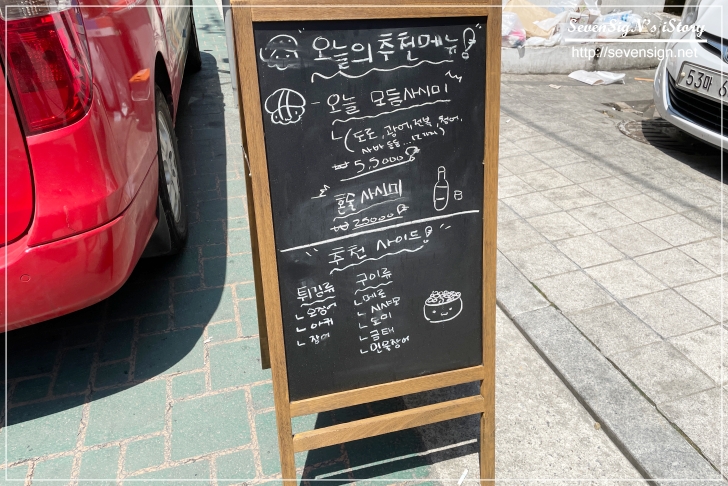 SevenSigN's iStory
http://sevensign.net
"오늘의 추천메뉴!"
- 오늘 모듬사시미
(도로, 광어, 전복, 청어,
사바 등등...
₩ 55,000
혼술 사시미
₩ 25000
"추천 사이드!"
튀김류
ㄴ오징어
ㄴ아귀
ㄴ장어
구이류
ㄴ메로
ㄴ시샤모
ㄴ도미
ㄴ금태
ㄴ민물장어
53마 6